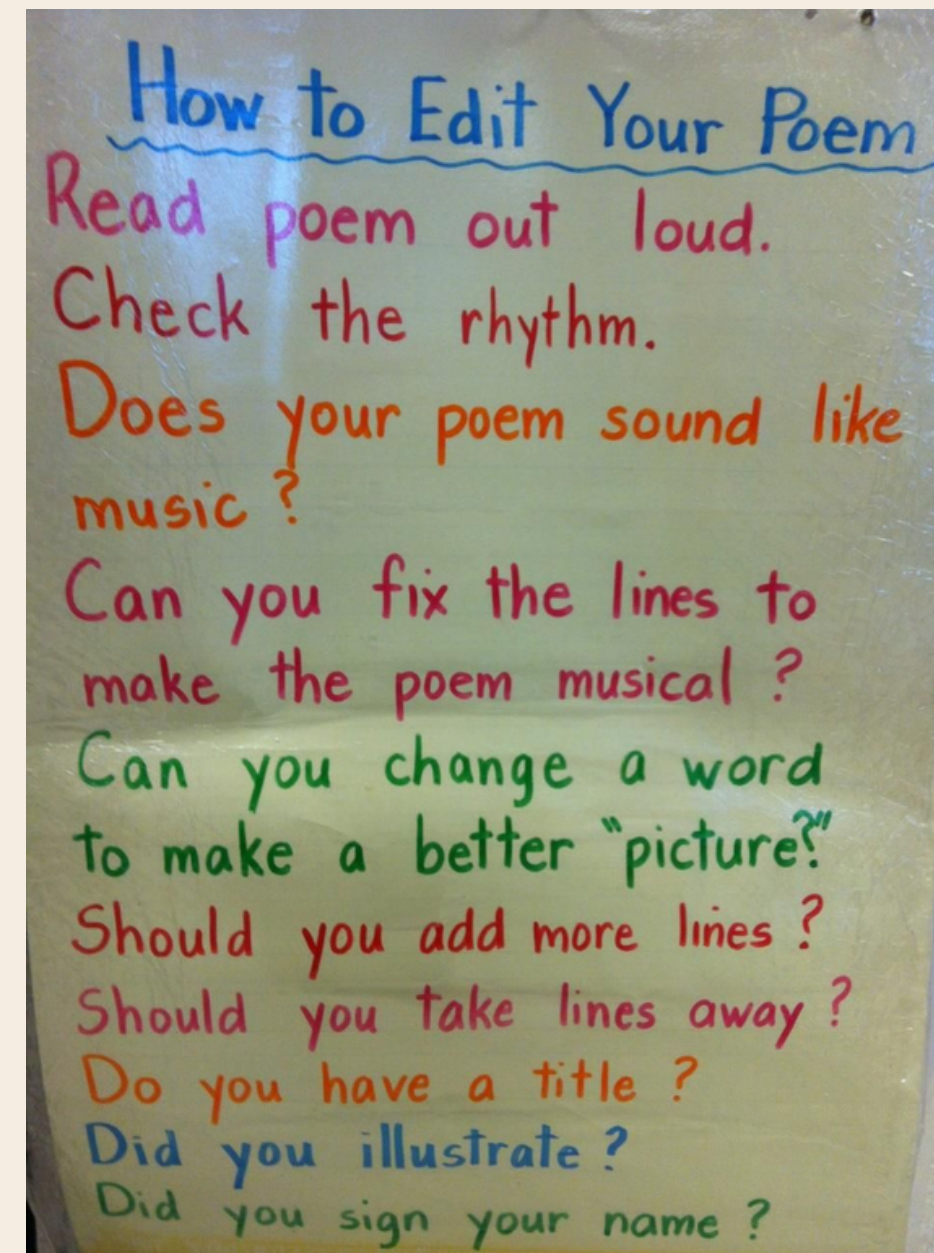 How to Edit Your Poem
Read poem out loud.
Check the rhythm.
Does your poem sound like
music ?
Can you fix the lines to
make the poem musical ?
Can you change a word
to make a better "picture?"
Should you add more lines ?
Should you take lines away ?
Do you have a title ?
Did you illustrate ?
Did you sign your name ?